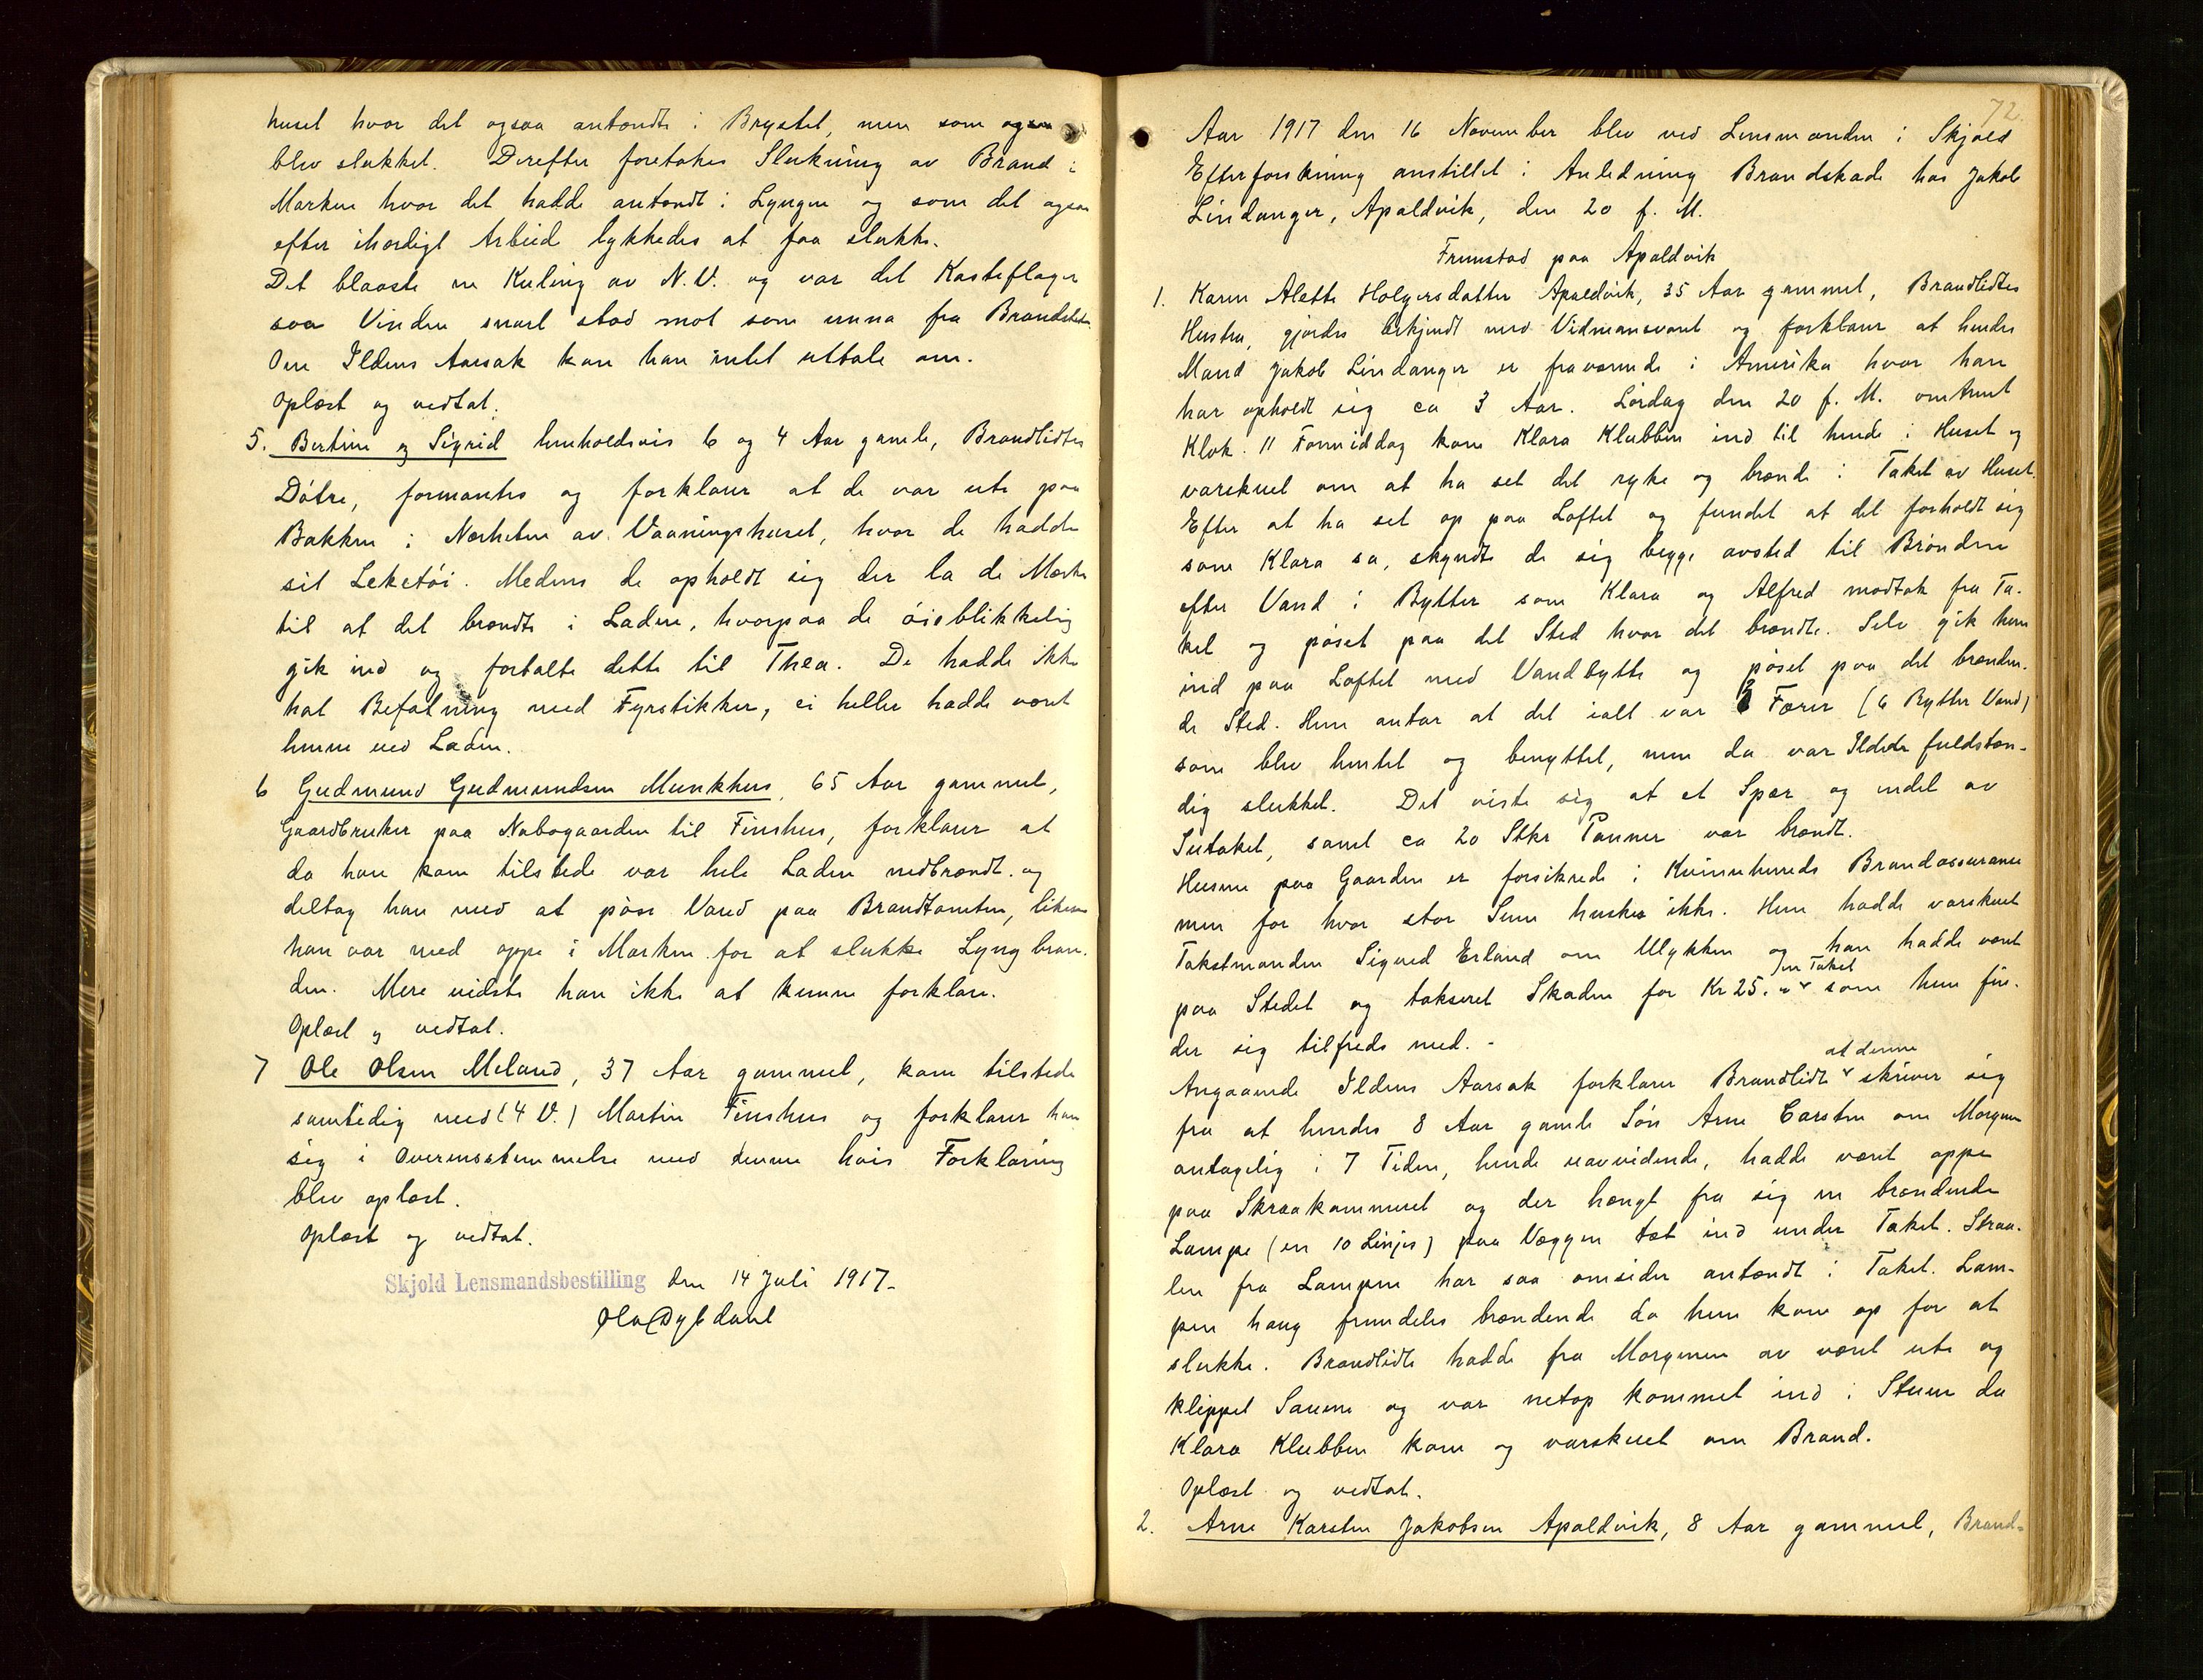 huset hvor det ogsaa antændte i Brystet, men som ogsaa
blev slukket. Derefter foretokes Slukning av Brand i
Marken hvor det hadde antændt i Lyngen og som det ogsaa
efter ihærdigt Arbeid lykkedes at faa slukke.
Det blaaste en Kuling av N.V. og var det Kasteflager
saa Vinden snart stod mot som unna fra Brandstedet.
Om Ildens Aarsak kan han intet uttale om.
Oplæst og vedtat.
5. Bertine og Sigrid henholdsvis 6 og 4 Aar gamle, Brandlidtes
Døtre, formantes og forklarer at de var ute paa
Bakken i Nærheten av Vaaningshuset, hvor de hadde
sit Leketøi. Medens de opholdt sig der la de Mærke
til at det brændte i Laden, hvorpaa de øieblikkelig
gik ind og fortalte dette til Thea. De hadde ikke
hat Befatning med Fyrstikker, ei heller hadde været
henne ved Laden.
6 Gudmund Gudmundsen Munkhus, 65 Aar gammel,
Gaardbruker paa Nabogaarden til Finshus, forklarer at
da han kom tilstede var hele Laden nedbrændt og
deltog han med at pøse Vand paa Brandtomten, likesom
han var med oppe i Marken for at slukke Lyngbran-
den. Mere vidste han ikke at kunne forklare.
Oplæst og vedtat.
7 Ole Olsen Meland, 37 Aar gammel, kom tilstede
samtidig med (4 V.) Martin Finshus og forklarer han
sig i Overensstemmelse med denne hvis Forklaring
blev oplæst.
Oplæst og vedtat.
Skjold Lensmandsbestilling den 14 Juli 1917.
Ola Dybdahl
72.
Aar 1917 den 16 November blev ved Lensmanden i Skjold
Efterforskning anstillet i Anledning Brandskade hos Jakob
Lindanger, Apaldvik, den 20 f. M.
Fremstod paa Apaldvik
1. Karen Alette Holgersdatter Apaldvik, 35 Aar gammel, Brandlidtes
Hustru, gjordes bekjendt med Vidneansvaret og forklarer at hendes
Mand Jakob Lindanger er fraværende i Amerika hvor han
har opholdt sig ca 3 Aar. Lørdag den 20 f. M. omtrent
Klok. 11 Formiddag kom Klara Klubben ind til hende i Huset og
varskuet om at ha set det ryke og brænde i Taket av Huset.
Efter at ha set op paa Loftet og fundet at det forholdt sig
som Klara sa, skyndte de sig begge avsted til Brønden
efter Vand i Bytter som Klara og Alfred modtok fra Ta-
ket og pøset paa det Sted hvor det brændte. Selv gik hun
ind paa Loftet med Vandbytte og pøset paa det brænden-
de Sted. Hun antar at det ialt var 3 Færer (6 Bytter Vand)
som blev hentet og benyttet, men da var Ilden fuldstæn-
dig slukket. Det viste sig at et Spær og endel av
Sutaket, samt ca 20 Stkr Panner var brændt.
Husene paa Gaarden er forsikrede i Kvinnherreds Brandassurance
men for hvor stor Sum huskes ikke. Hun hadde varskuet
Takstmanden Sigurd Erland om Ulykken og han hadde været
paa Stedet og taksert Skaden paa Taket for Kr 25.„ som hun fin-
der sig tilfreds med. -
Angaaende Ildens Aarsak forklarer Brandlidte at denne skriver sig
fra at hendes 8 Aar gamle Søn Arne Carsten om Morgenen
antagelig i 7 Tiden, hende uavvidende, hadde været oppe
paa Skraakammeret og der hængt fra sig en brændende
Lampe (en 10 Linjes) paa Væggen tæt ind under Taket. Straa-
len fra Lampen har saa omsider antændt i Taket. Lam-
pen hang fremdeles brændende da hun kom op for at
slukke. Brandlidte hadde fra Morgenen av været ute og
klippet Sauene og var netop kommet ind i Stuen da
Klara Klubben kom og varskuet om Brand.
Oplæst og vedtat.
2. Arne Karsten Jakobsen Apaldvik, 8 Aar gammel, Brand-